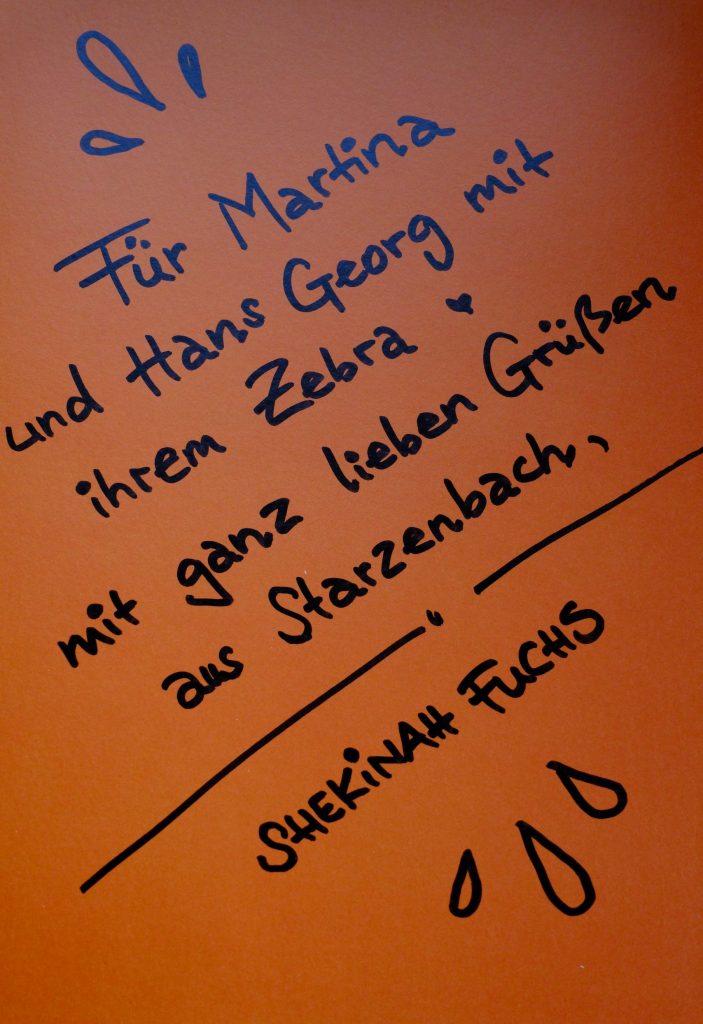 Für Martina
und Hans Georg mit
ihrem Zebra
mit ganz lieben Grüßen
aus Starzenbach,
SHEKiNAH FUCHS